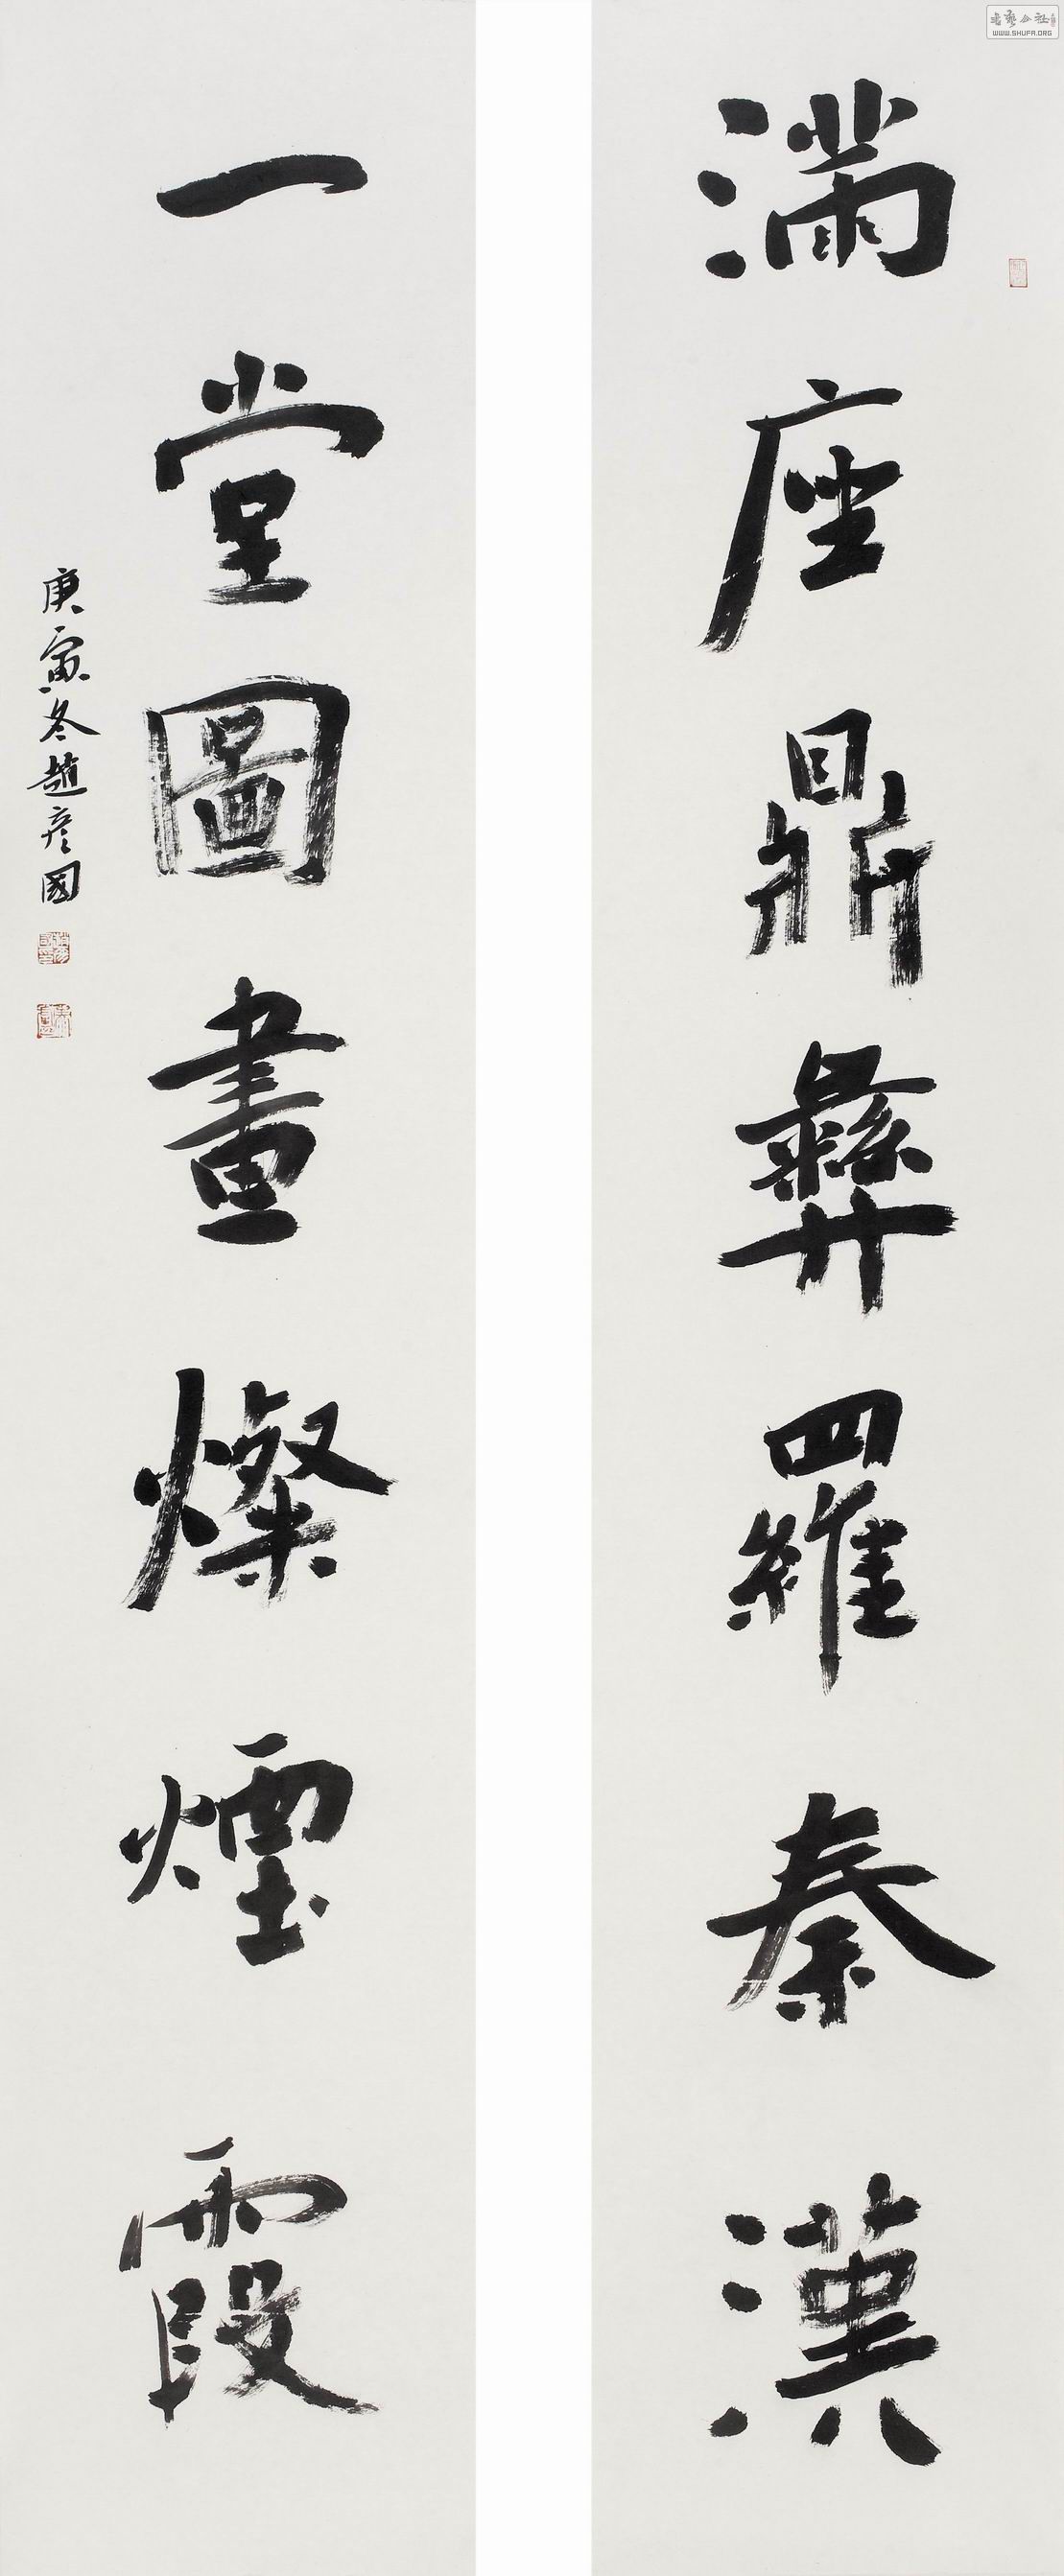 滿座鼎彝羅秦漢
一堂圖畫燦煙霞
庚寅冬趙彥國
WWW.SHUFA.ORG